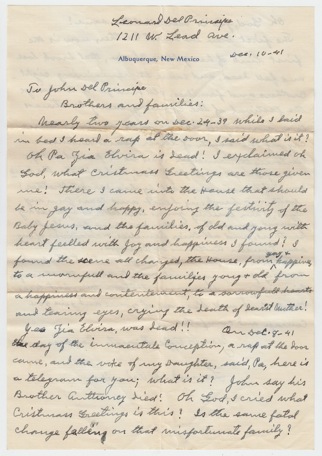 Leonard Del Principe
1211 W. Lead Ave.
Albuquerque, New Mexico
Dec. 10-41
To John Del Principe
Brothers and families:
Nearly two years on Dec. 24-39 while I laid
in bed I heard a rap at the door, I said what is it?
Oh Pa Zia Elvira is dead! I exclaimed oh
God, what Cristmass Greetings are those given
me! There I came into the House that should
be in gay and happy, enjoing the festivity of the
Baby Jesus, and the families, of old and yong with
heart feelled with joy and happiness I found! I
found the scene all changed, the House, from gay & happiness
to a mornfull and the families yong & old from
a happiness and contentement, to a sorrowfull hearts
and tearing eyes, crying the death of dearest Mother!
Yes Zia Elvira, was dead!! On Dec. 9-41
the day of the immaculate Conception, a rap at the door
came, and the voke of my Daughter, said, Pa, here is
a telegram for you; what is it? John say his
Brother Anthoney died! Oh God, I cried what
Cristmass Greetings is this! Is the same fatal
change falling on that misfortunate family?